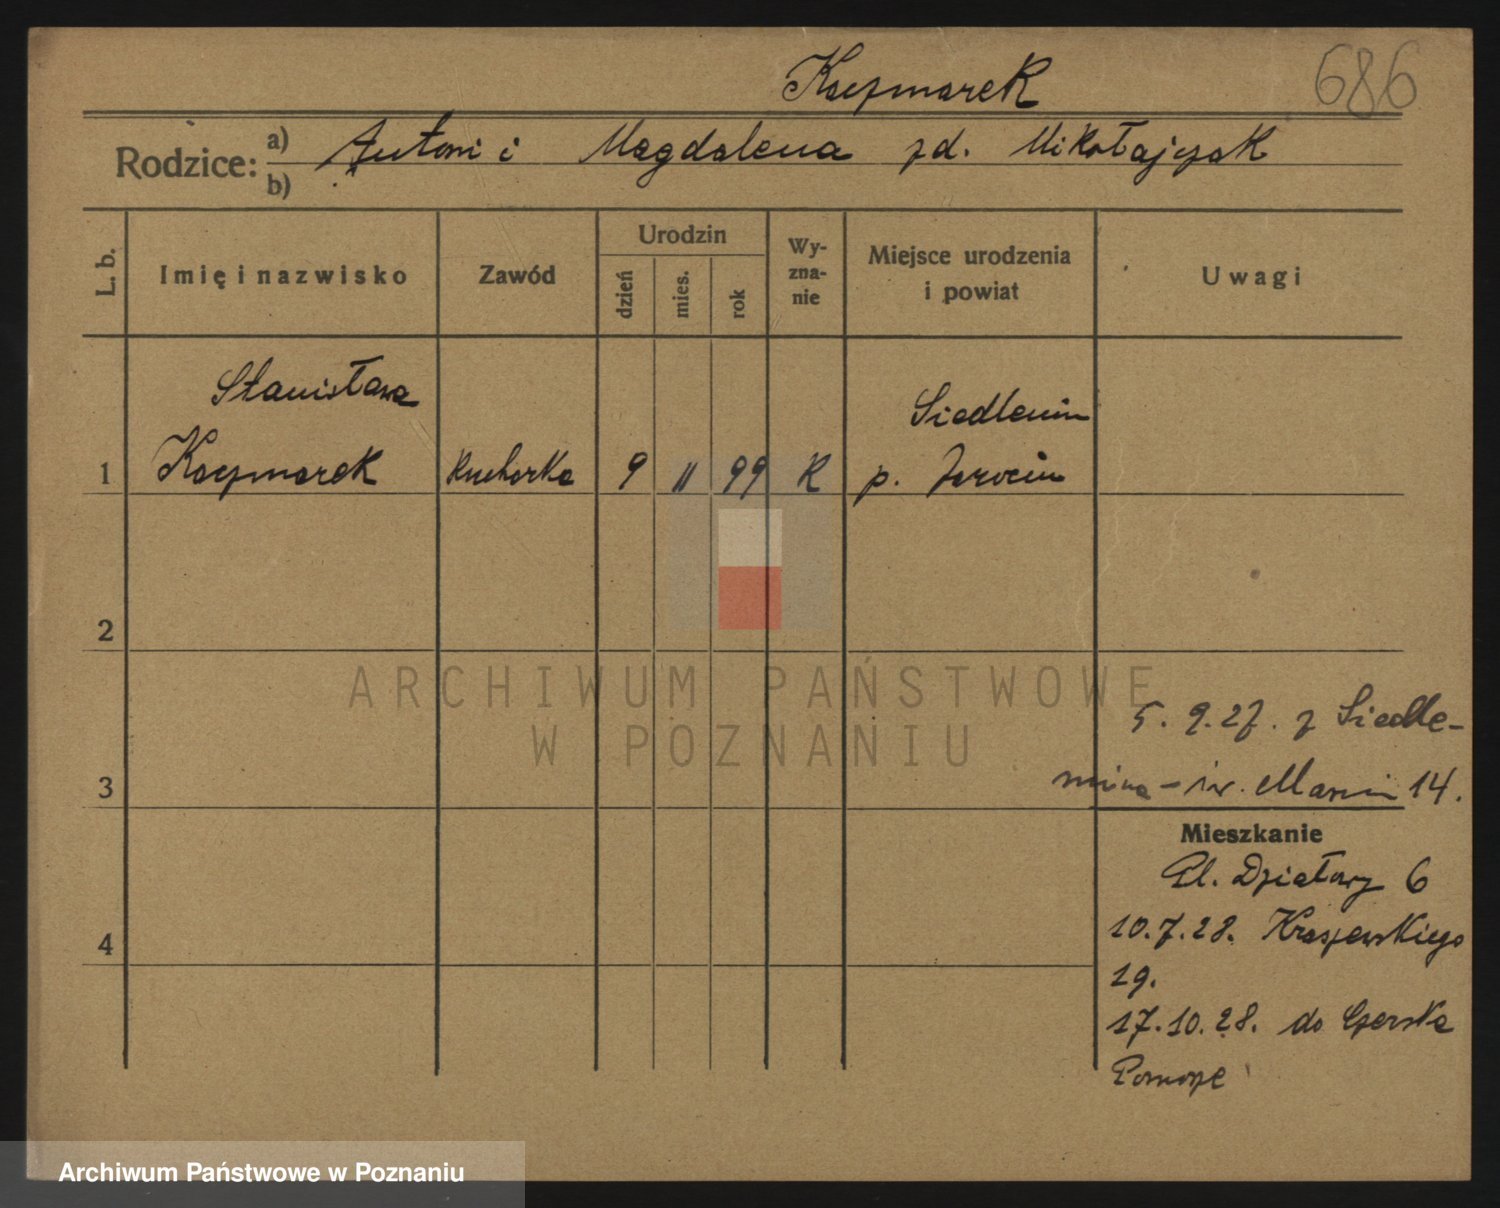 Kaczmarek
686
Rodzice:
a) Antoni i Magdalena zd. Mikołajczak
b)
L. b.
Imię i nazwisko
Zawód
Urodzin
dzień
mies.
rok
Wy-
zna-
nie
Miejsce urodzenia
i powiat
Uwagi
Stanisława
Siedlemin
1 Kaczmarek kucharka 9 11 99 R p. Jarocin
2
ARCHIWUM PAŃSTWOWE
W POZNANIU
5. 9. 27. z Siedle-
3
mina - św. Marcin 14.
Mieszkanie
Pl. Działowy 6
10.7.28. Kraszewskiego
4
19.
17.10.28. do Czerska
Pomorze
Archiwum Państwowe w Poznaniu